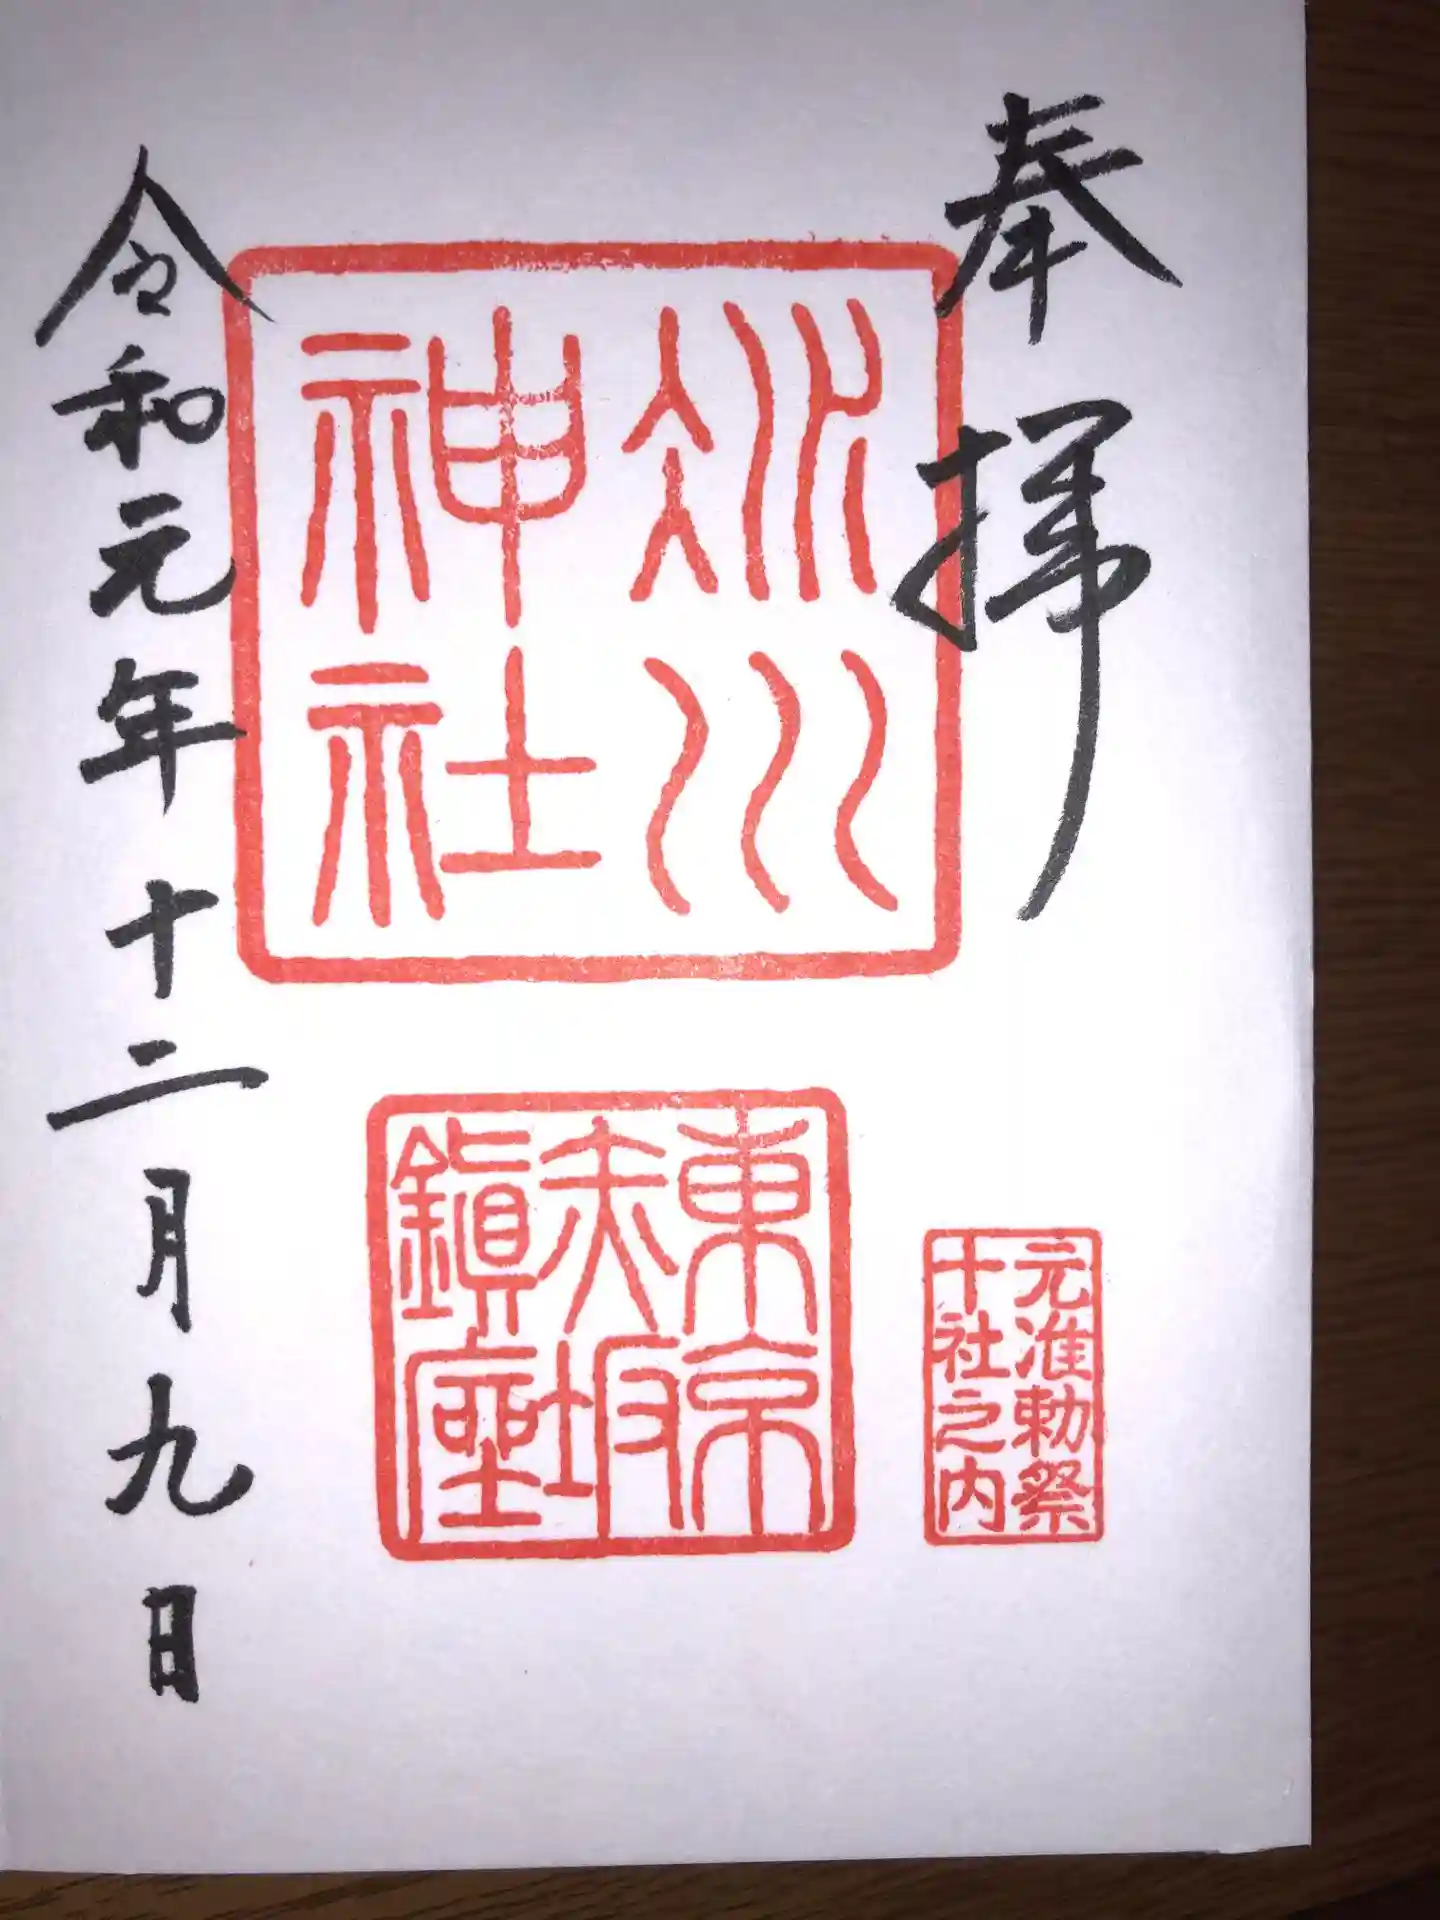 奉拝
元准勅祭
十社之内
氷川
神社
東京
赤坂
鎮座
令和元年十二月九日